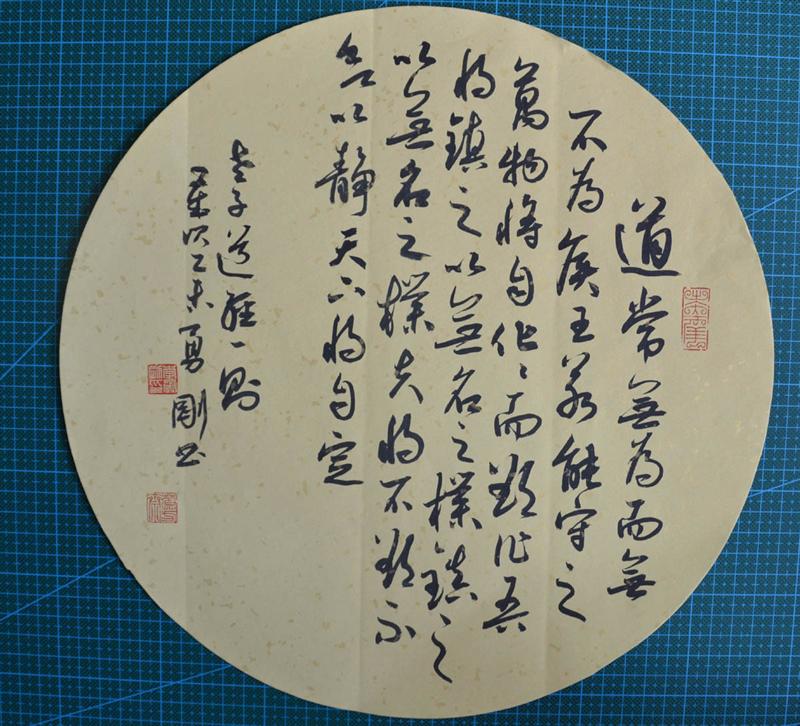 道常無為而無
不為侯王若能守之
萬物將自化〻而欲作吾
將鎮之以無名之樸鎮之
以無名之樸夫將不欲不
以靜天下將自定
老子道經一則
歲次乙未勇剛書